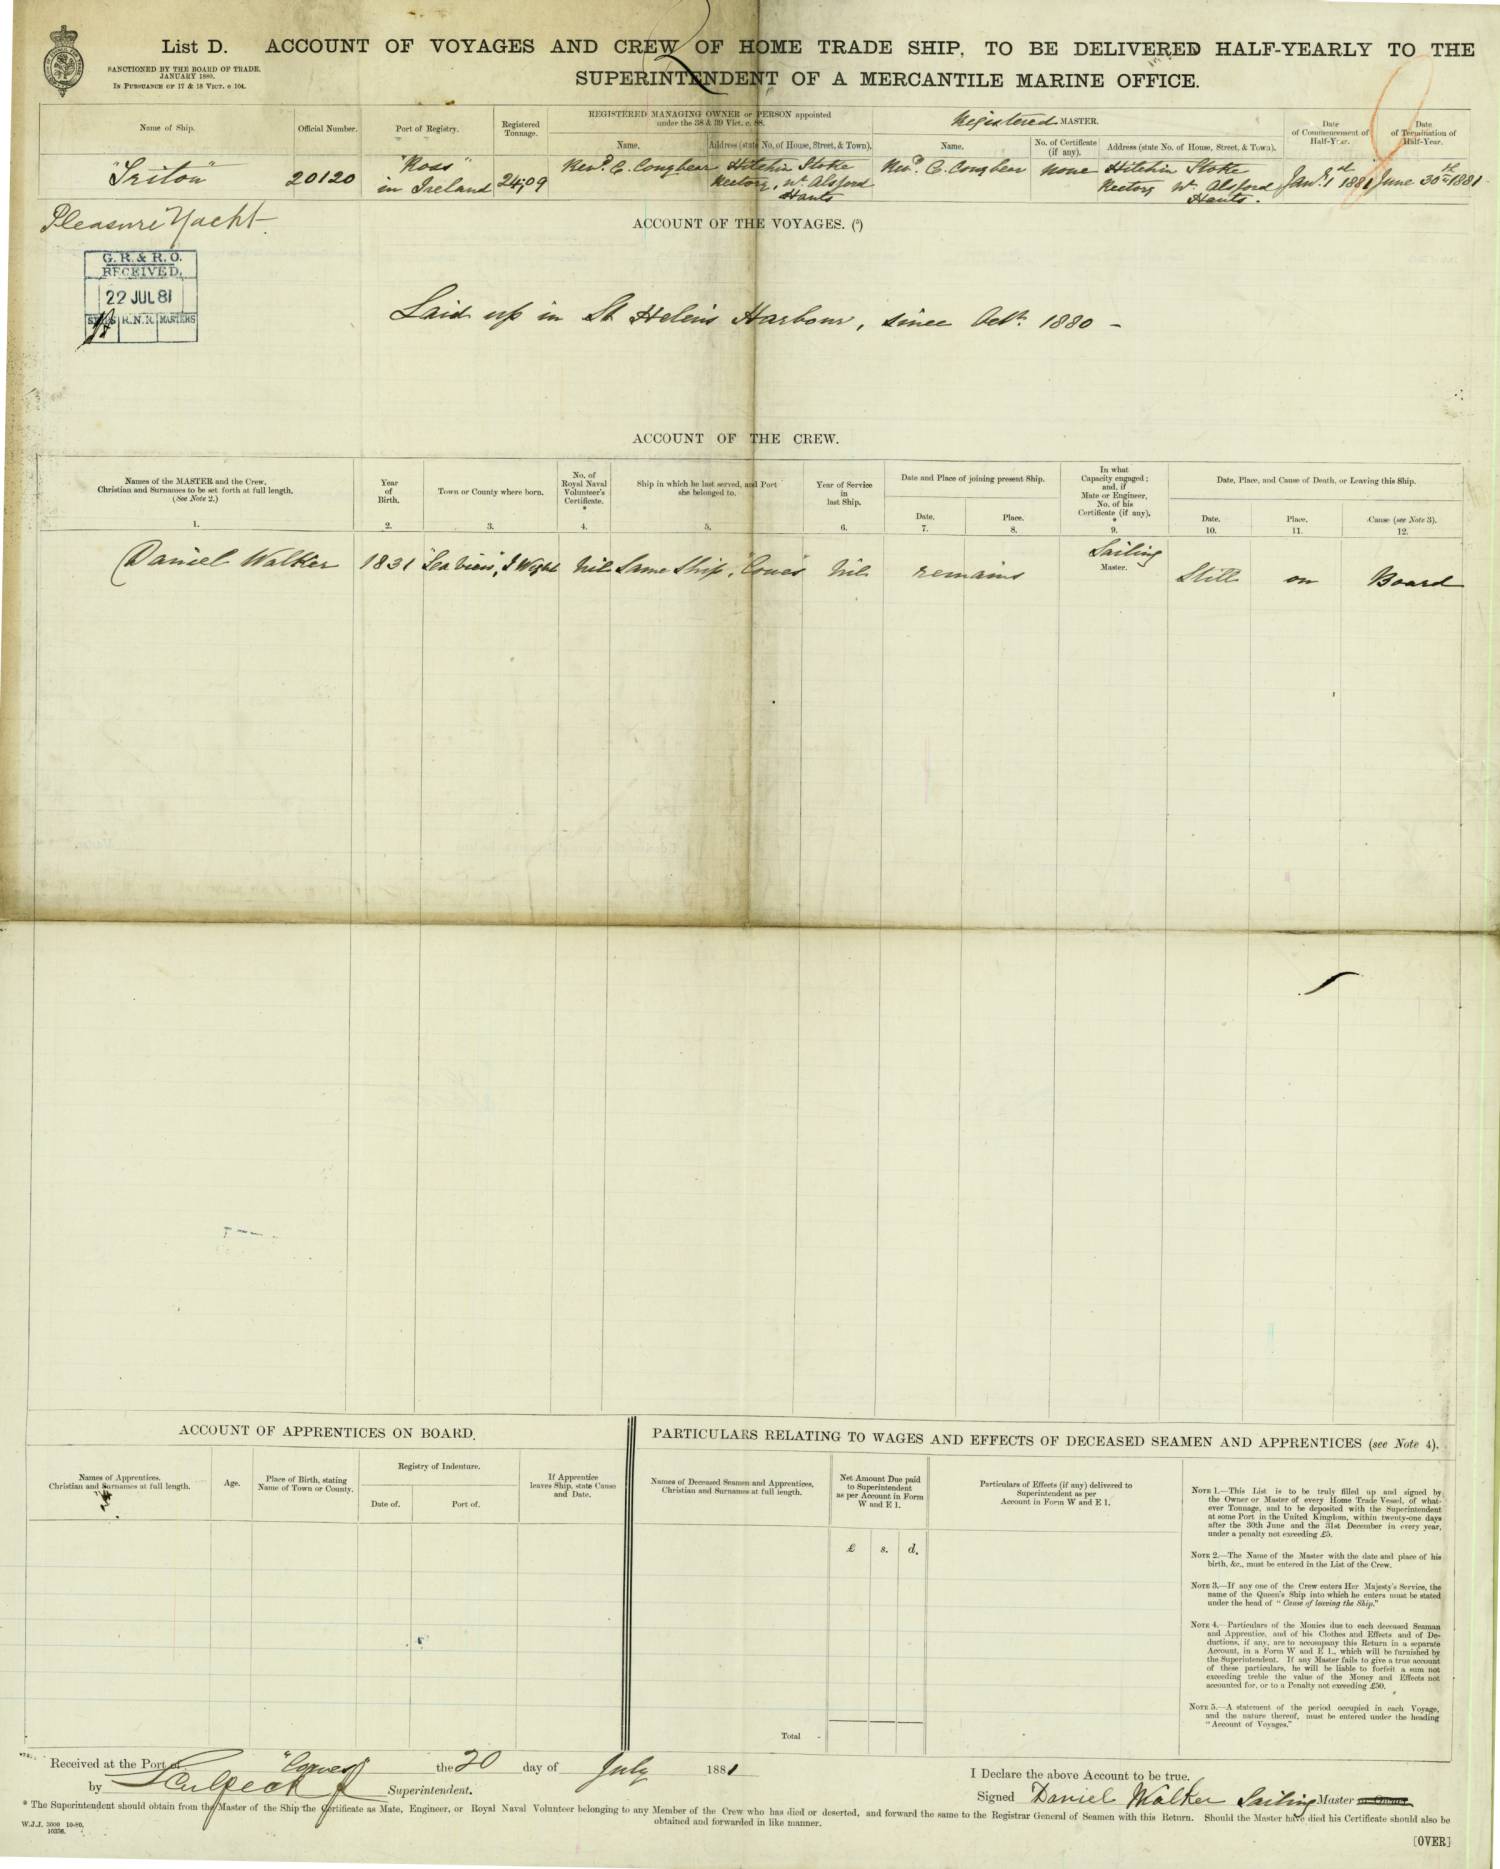 List D. ACCOUNT OF VOYAGES AND CREW OF HOME TRADE SHIP, TO BE DELIVERED HALF-YEARLY TO THE
SUPERINTENDENT OF A MERCANTILE MARINE OFFICE.
SANCTIONED BY THE BOARD OF TRADE,
JANUARY 1880.
IN PURSUANCE OF 17 & 18 VICT. c 104.
Name of Ship.
Official Number.
Port of Registry.
Registered
Tonnage.
REGISTERED MANAGING OWNER or PERSON appointed
under the 38 & 39 Vict. c. 88.
Name.
Address (state No. of House, Street, & Town).
Registered MASTER.
Name.
No. of Certificate
(if any).
Address (state No. of House, Street, & Town).
Date
of Commencement of
Half-Year.
Date
of Termination of
Half-Year.
"Triton"
20120
"Ross"
in Ireland
24,09
Revd. C. Conybear
Hitchin Stoke
Rectory, Nr. Alsford
Hants
Revd. C. Conybear
none
Hitchin Stoke
Rectory Nr. Alsford
Hants.
Jany. 1st 1881
June 30th 1881
Pleasure Yacht.
ACCOUNT OF THE VOYAGES. (5)
G. R. & R. O.
RECEIVED.
22 JUL 81
R.N.R. MASTERS
Laid up in St Helens Harbour, since Octr. 1880 -
ACCOUNT OF THE CREW.
Names of the MASTER and the Crew,
Christian and Surnames to be set forth at full length.
(See Note 2.)
1.
Year
of
Birth.
2.
Town or County where born.
3.
No. of
Royal Naval
Volunteer's
Certificate.
*
4.
Ship in which he last served, and Port
she belonged to.
5.
Year of Service
in
last Ship.
6.
Date and Place of joining present Ship.
Date.
7.
Place.
8.
In what
Capacity engaged;
and, if
Mate or Engineer,
No. of his
Certificate (if any).
*
9.
Date, Place, and Cause of Death, or Leaving this Ship.
Date.
10.
Place.
11.
Cause (see Note 3).
12.
Daniel Walker 1831 "Sea View", I Wight Nil Same Ship, "Cowes" Nil remains Sailing Master. Still on Board
ACCOUNT OF APPRENTICES ON BOARD.
Names of Apprentices.
Christian and Surnames at full length.
Age.
Place of Birth, stating
Name of Town or County.
Registry of Indenture.
Date of.
Port of.
If Apprentice
leaves Ship, state Cause
and Date.
PARTICULARS RELATING TO WAGES AND EFFECTS OF DECEASED SEAMEN AND APPRENTICES (see Note 4).
Names of Deceased Seamen and Apprentices,
Christian and Surnames at full length.
Net Amount Due paid
to Superintendent
as per Account in Form
W and E 1.
£ s. d.
Particulars of Effects (if any) delivered to
Superintendent as per
Account in Form W and E 1.
Total
NOTE 1.—This List is to be truly filled up and signed by
the Owner or Master of every Home Trade Vessel, of what-
ever Tonnage, and to be deposited with the Superintendent
at some Port in the United Kingdom, within twenty-one days
after the 30th June and the 31st December in every year,
under a penalty not exceeding £5.
NOTE 2.—The Name of the Master with the date and place of his
birth, &c., must be entered in the List of the Crew.
NOTE 3.—If any one of the Crew enters Her Majesty's Service, the
name of the Queen's Ship into which he enters must be stated
under the head of "Cause of leaving the Ship."
NOTE 4.—Particulars of the Monies due to each deceased Seaman
and Apprentice, and of his Clothes and Effects and of De-
ductions, if any, are to accompany this Return in a separate
Account, in a Form W and E 1., which will be furnished by
the Superintendent. If any Master fails to give a true account
of these particulars, he will be liable to forfeit a sum not
exceeding treble the value of the Money and Effects not
accounted for, or to a Penalty not exceeding £50.
NOTE 5.—A statement of the period occupied in each Voyage,
and the nature thereof, must be entered under the heading
"Account of Voyages."
Received at the Port of "Cowes" the 20 day of July 1881
by Superintendent.
I Declare the above Account to be true.
Signed Daniel Walker Sailing Master or Owner.
* The Superintendent should obtain from the Master of the Ship the Certificate as Mate, Engineer, or Royal Naval Volunteer belonging to any Member of the Crew who has died or deserted, and forward the same to the Registrar General of Seamen with this Return. Should the Master have died his Certificate should also be
obtained and forwarded in like manner.
W.J.J. 3000 10-80.
10336.
[OVER]